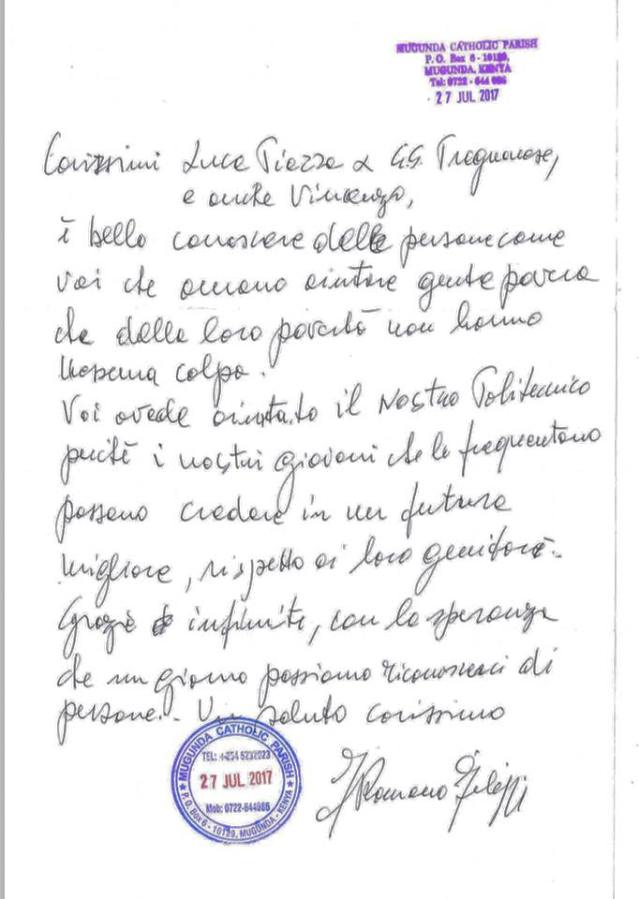 MUGUNDA CATHOLIC PARISH
P. O. Box 6 - 10129,
MUGUNDA, KENYA
Tel: 0722 - 644 986
27 JUL 2017
Carissimi Luca Piazza & G.G. Tregnanese,
e anche Vincenzo,
è bello conoscere delle persone come
voi che amano aiutare gente povera
che della loro povertà non hanno
nessuna colpa.
Voi avede aiutato il Nostro Politecnico
perché i nostri giovani che lo frequentano
possano credere in un futuro
migliore, rispetto ai loro genitori.
Grazie infinite, con la speranza
che un giorno possiamo riconoscerci di
persone. Un saluto carissimo
MUGUNDA CATHOLIC PARISH
27 JUL 2017
Mob: 0722-644986
P. O. Box 6 - 10129, MUGUNDA - KENYA
Romano Filippi